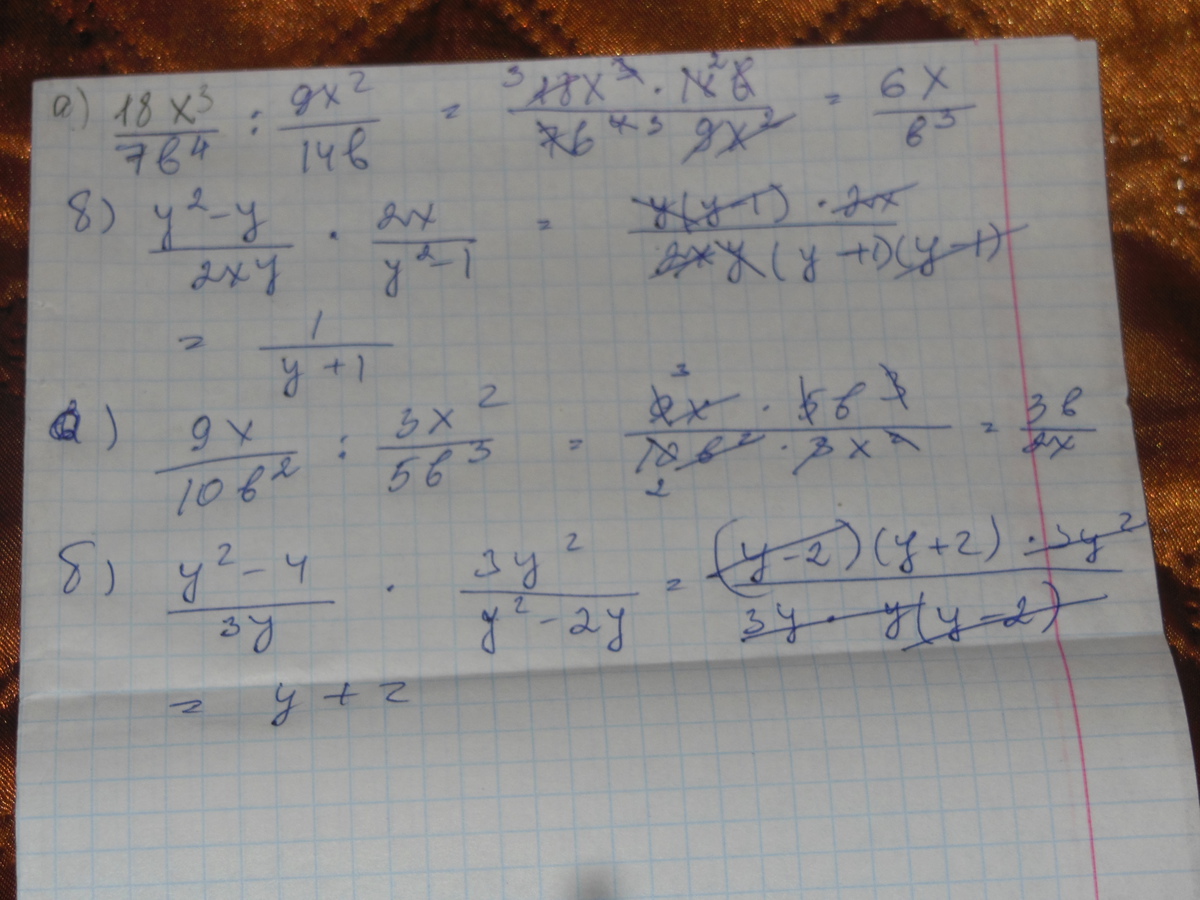 а) 18x³/7b⁴ : 9x²/14b = ³18x³ · 14²b / 7b⁴ ³ 9x² = 6x/b³
б) y²-y/2xy · 2x/y²-1 = y(y-1) · 2x / 2xy(y+1)(y-1)
= 1/y+1
а) 9x/10b² : 3x²/5b³ = ³9x · 5b³ / 10₂b² · 3x² = 3b/2x
б) y²-4/3y · 3y²/y²-2y = (y-2)(y+2) · 3y² / 3y · y(y-2)
= y+2